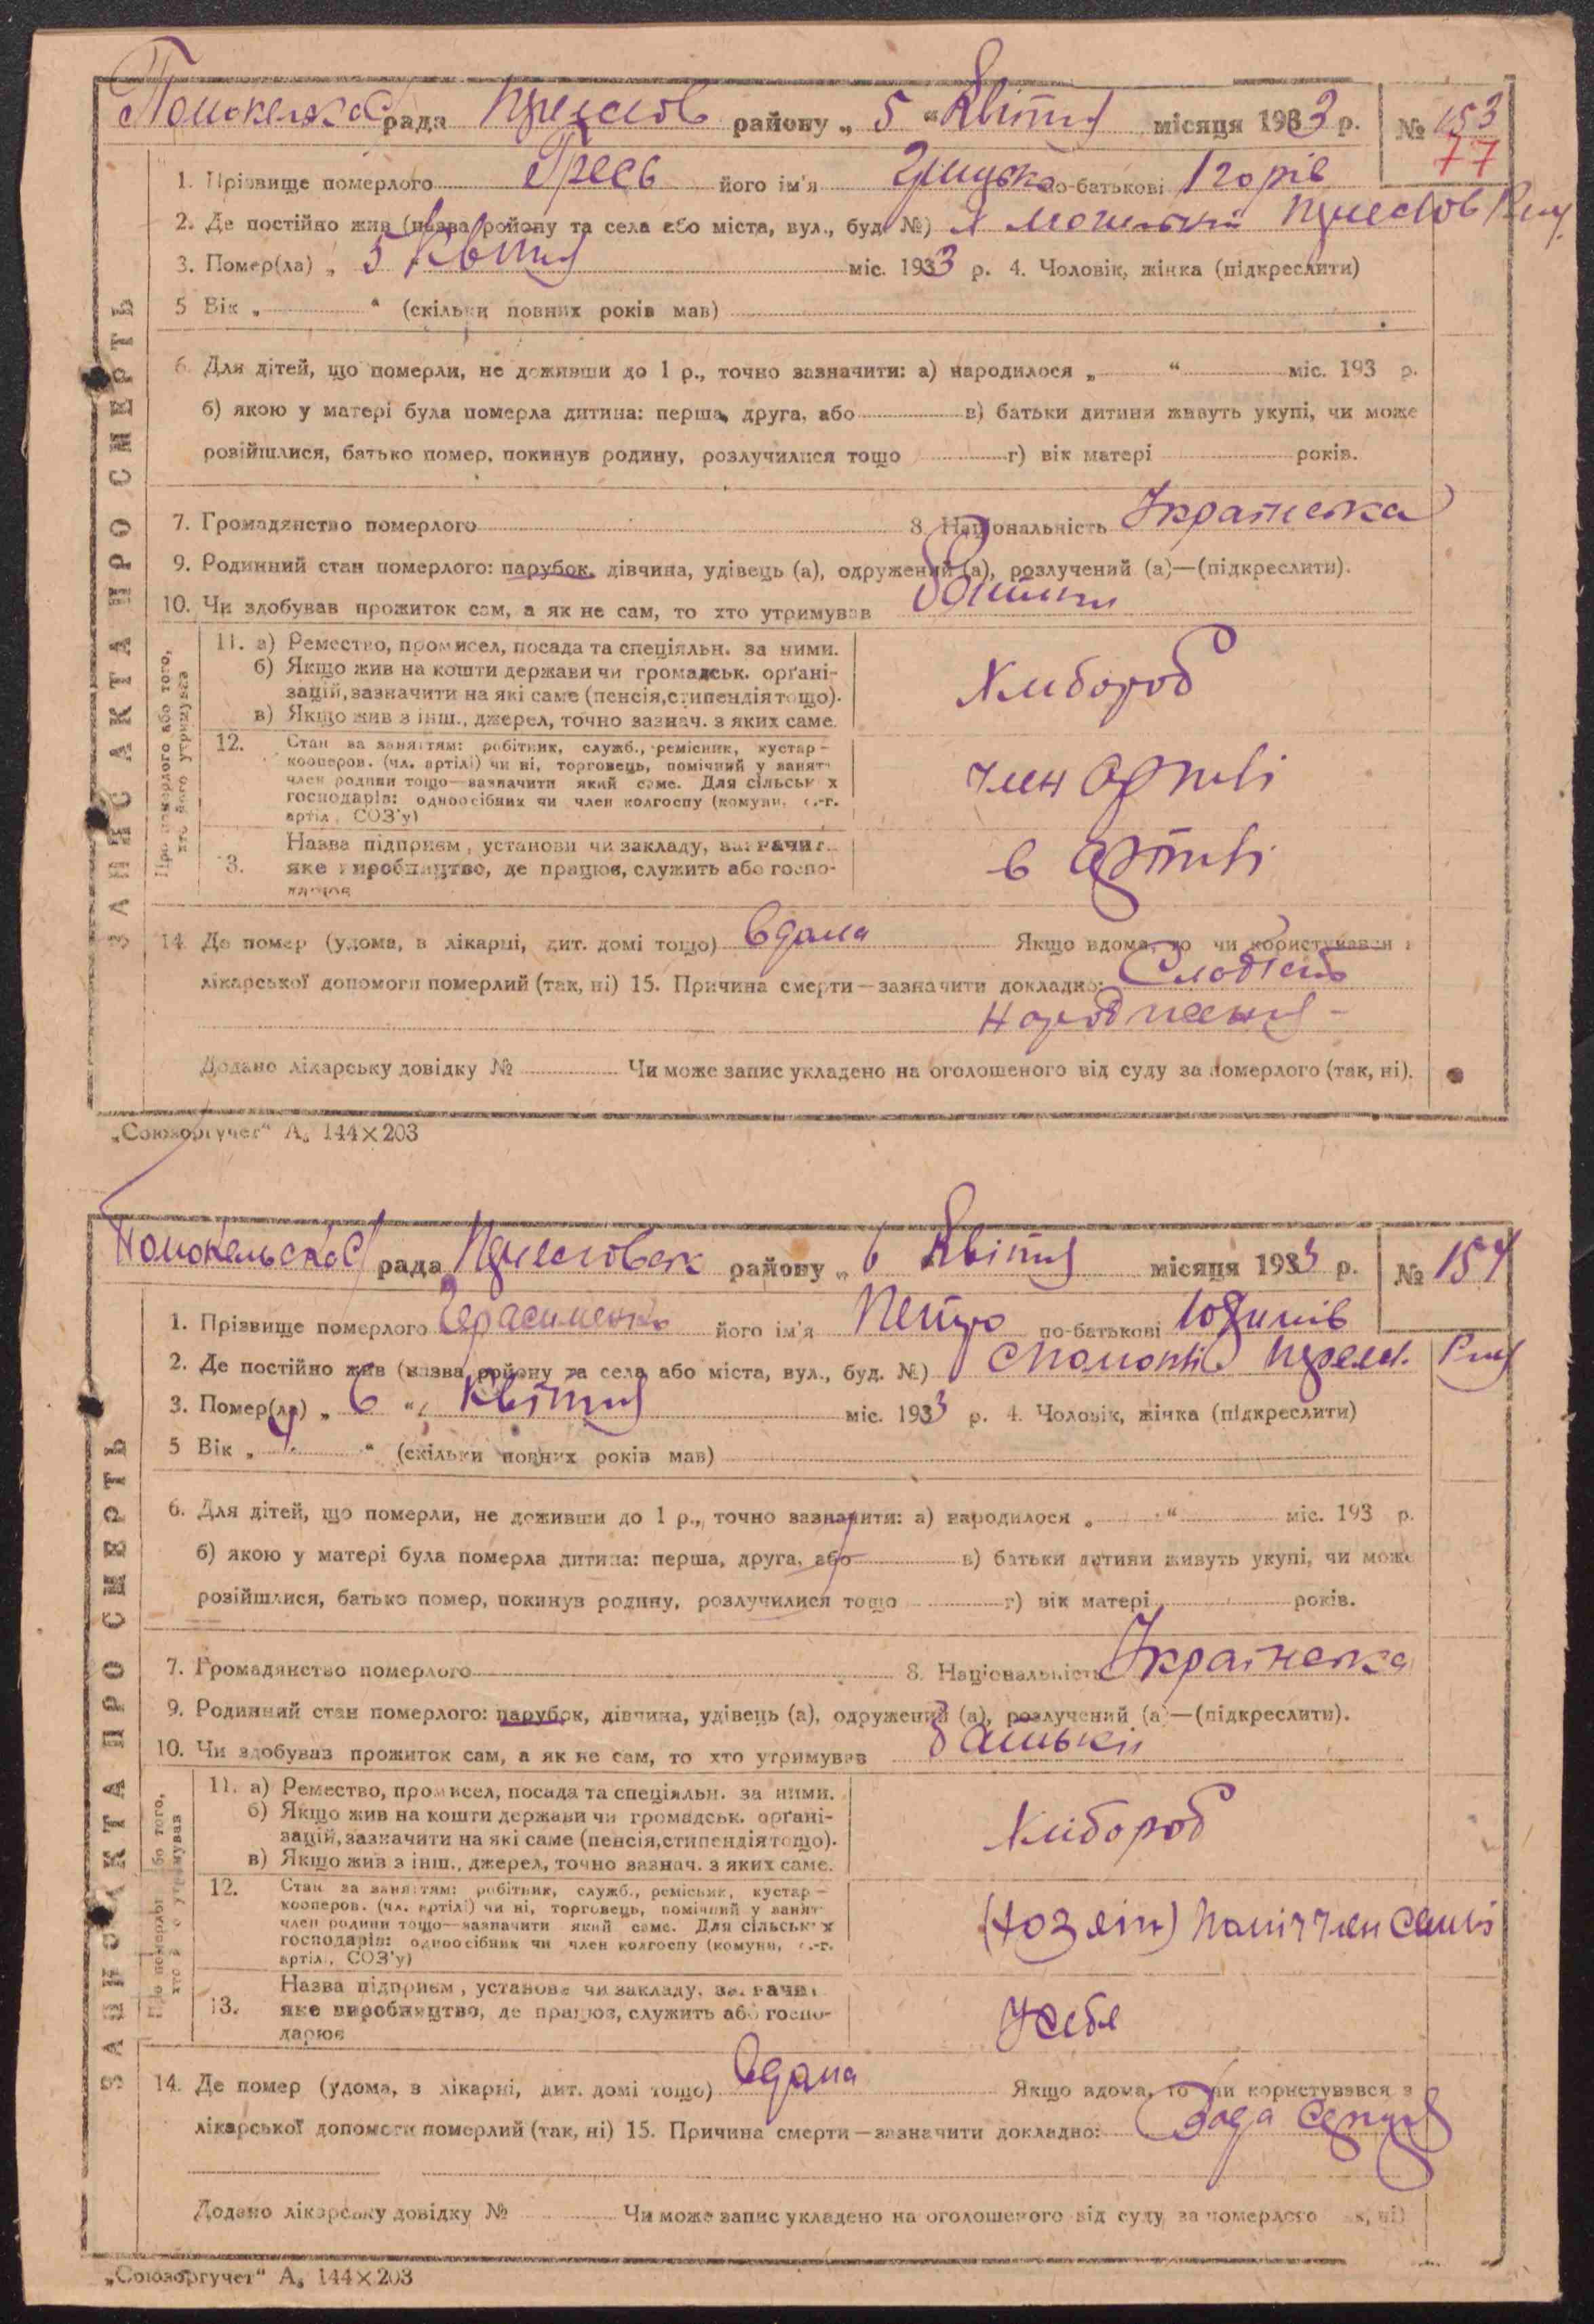 рада району „ 5 “ Квітня місяця 1933 р. № 153
77
1. Прізвище померлого Гресь його ім'я по-батькові Ігорів
2. Де постійно жив (назва району та села або міста, вул., буд. №)
3. Помер(ла) „ 5 Квітня міс. 1933 р. 4. Чоловік, жінка (підкреслити)
5 Вік „ “ (скільки повних років мав)
6. Для дітей, що померли, не доживши до 1 р., точно зазначити: а) народилося „ “ міс. 193 р.
б) якою у матері була померла дитина: перша, друга, або в) батьки дитини живуть укупі, чи може
розійшлися, батько помер, покинув родину, розлучилися тощо г) вік матері років.
7. Громадянство померлого 8. Національність Українська
9. Родинний стан померлого: парубок, дівчина, удівець (а), одружений (а), розлучений (а)—(підкреслити).
10. Чи здобував прожиток сам, а як не сам, то хто утримував
ЗАПИС АКТА ПРО СМЕРТЬ
Про померлого або того,
хто його утримував
11. а) Ремество, промисел, посада та спеціяльн. за ними.
б) Якщо жив на кошти держави чи громадськ. орґані-
зацій, зазначити на які саме (пенсія, стипендія тощо).
в) Якщо жив з інш., джерел, точно зазнач. з яких саме.
Хлібороб
12. Стан за заняттям: робітник, служб., ремісник, кустар –
кооперов. (чл. артілі) чи ні, торговець, помічний у занят.
член родини тощо—зазначити який саме. Для сільськ х
господарів: одноосібник чи член колгоспу (комуни, с.-г.
артіл., СОЗ'у)
член артілі
Назва підприєм, установи чи закладу, зазначит.
13. яке виробництво, де працює, служить або госпо-
дарює
в артілі
14. Де помер (удома, в лікарні, дит. домі тощо) вдома Якщо вдома, то чи користувався з
лікарської допомоги померлий (так, ні) 15. Причина смерти—зазначити докладно: Слабість
Додано лікарську довідку № Чи може запис укладено на оголошеного від суду за померлого (так, ні).
„Союзоргучет“ А₅ 144×203
рада району „ 6 Квітня місяця 1933 р. № 154
1. Прізвище померлого Герасименко його ім'я Петро по-батькові
2. Де постійно жив (назва району та села або міста, вул., буд. №)
3. Помер(ла) „ 6 “ Квітня міс. 1933 р. 4. Чоловік, жінка (підкреслити)
5 Вік „ “ (скільки повних років мав)
6. Для дітей, що померли, не доживши до 1 р., точно зазначити: а) народилося „ “ міс. 193 р.
б) якою у матері була померла дитина: перша, друга, або в) батьки дитини живуть укупі, чи може
розійшлися, батько помер, покинув родину, розлучилися тощо г) вік матері років.
7. Громадянство померлого 8. Національність Українська
9. Родинний стан померлого: парубок, дівчина, удівець (а), одружений (а), розлучений (а)—(підкреслити).
10. Чи здобував прожиток сам, а як не сам, то хто утримував батьки
ЗАПИС АКТА ПРО СМЕРТЬ
Про померлого або того,
хто його утримував
11. а) Ремество, промисел, посада та спеціяльн. за ними.
б) Якщо жив на кошти держави чи громадськ. орґані-
зацій, зазначити на які саме (пенсія, стипендія тощо).
в) Якщо жив з інш., джерел, точно зазнач. з яких саме.
Хлібороб
12. Стан за заняттям: робітник, служб., ремісник, кустар –
кооперов. (чл. артілі) чи ні, торговець, помічний у занят.
член родини тощо—зазначити який саме. Для сільськ х
господарів: одноосібник чи член колгоспу (комуни, с.-г.
артіл., СОЗ'у)
член
Назва підприєм, установи чи закладу, зазначит.
13. яке виробництво, де працює, служить або госпо-
дарює
У себе
14. Де помер (удома, в лікарні, дит. домі тощо) вдома Якщо вдома, то чи користувався з
лікарської допомоги померлий (так, ні) 15. Причина смерти—зазначити докладно:
Додано лікарську довідку № Чи може запис укладено на оголошеного від суду за померлого (так, ні)
„Союзоргучет“ А₅ 144×203